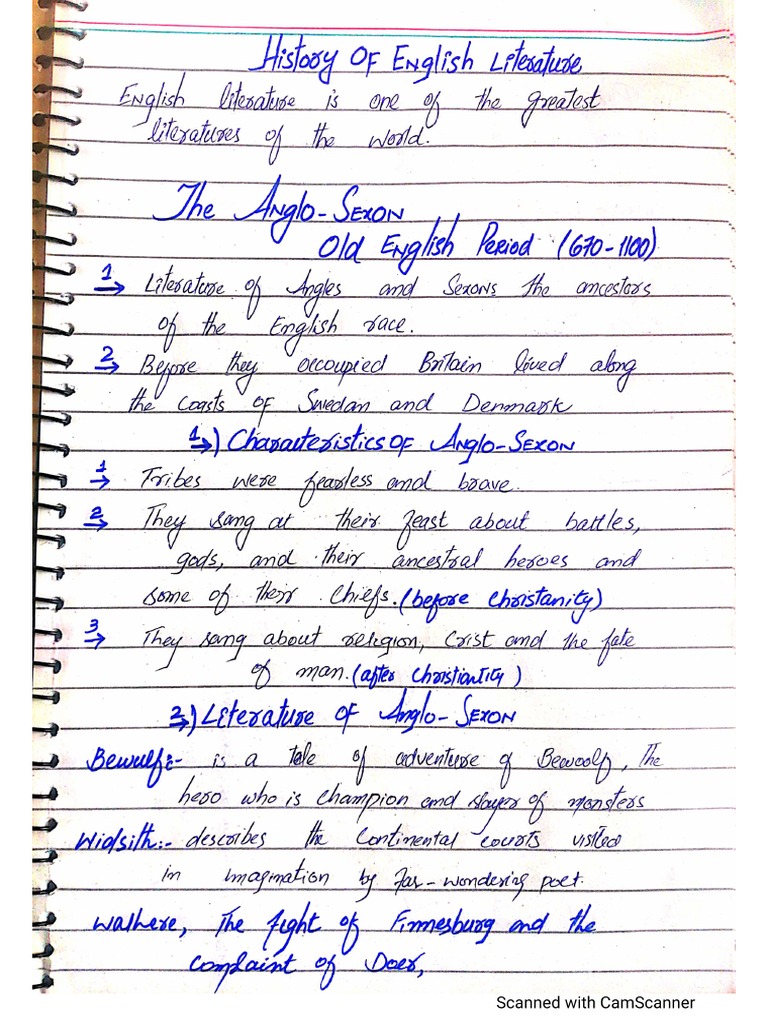 History Of English Literature
English literature is one of the greatest
literatures of the world.
The Anglo-Sexon
Old English Period (670-1100)
1→ Literature of Angles and Sexons the ancestors
of the English race.
2→ Before they occupied Britain lived along
the coasts of Swedan and Denmark
1→) Characteristics of Anglo-Sexon
1→ Tribes were fearless and brave.
2→ They sang at their feast about battles,
gods, and their ancestral heroes and
some of their chiefs. (before Christanity)
3→ They sang about religion, Crist and the fate
of man. (after Christiantity)
2→) Literature of Anglo-Sexon
Bewulf:- is a tale of adventure of Bewoolf, The
hero who is champion and slayer of monsters
Widsith:- describes the Continental courts visited
in imagination by far-wondering poet.
Walhere, The fight of Finnesburg and the
Complaint of Doer,
Scanned with CamScanner